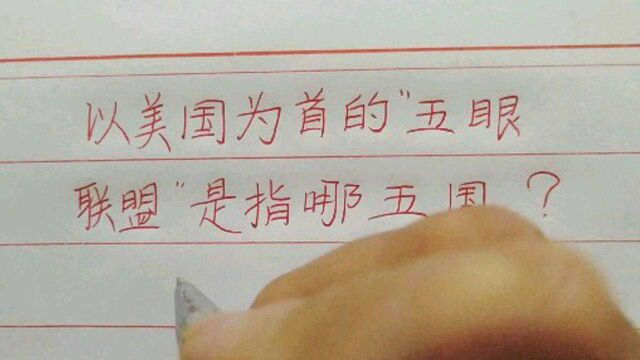 以美国为首的"五眼
联盟"是指哪五国？